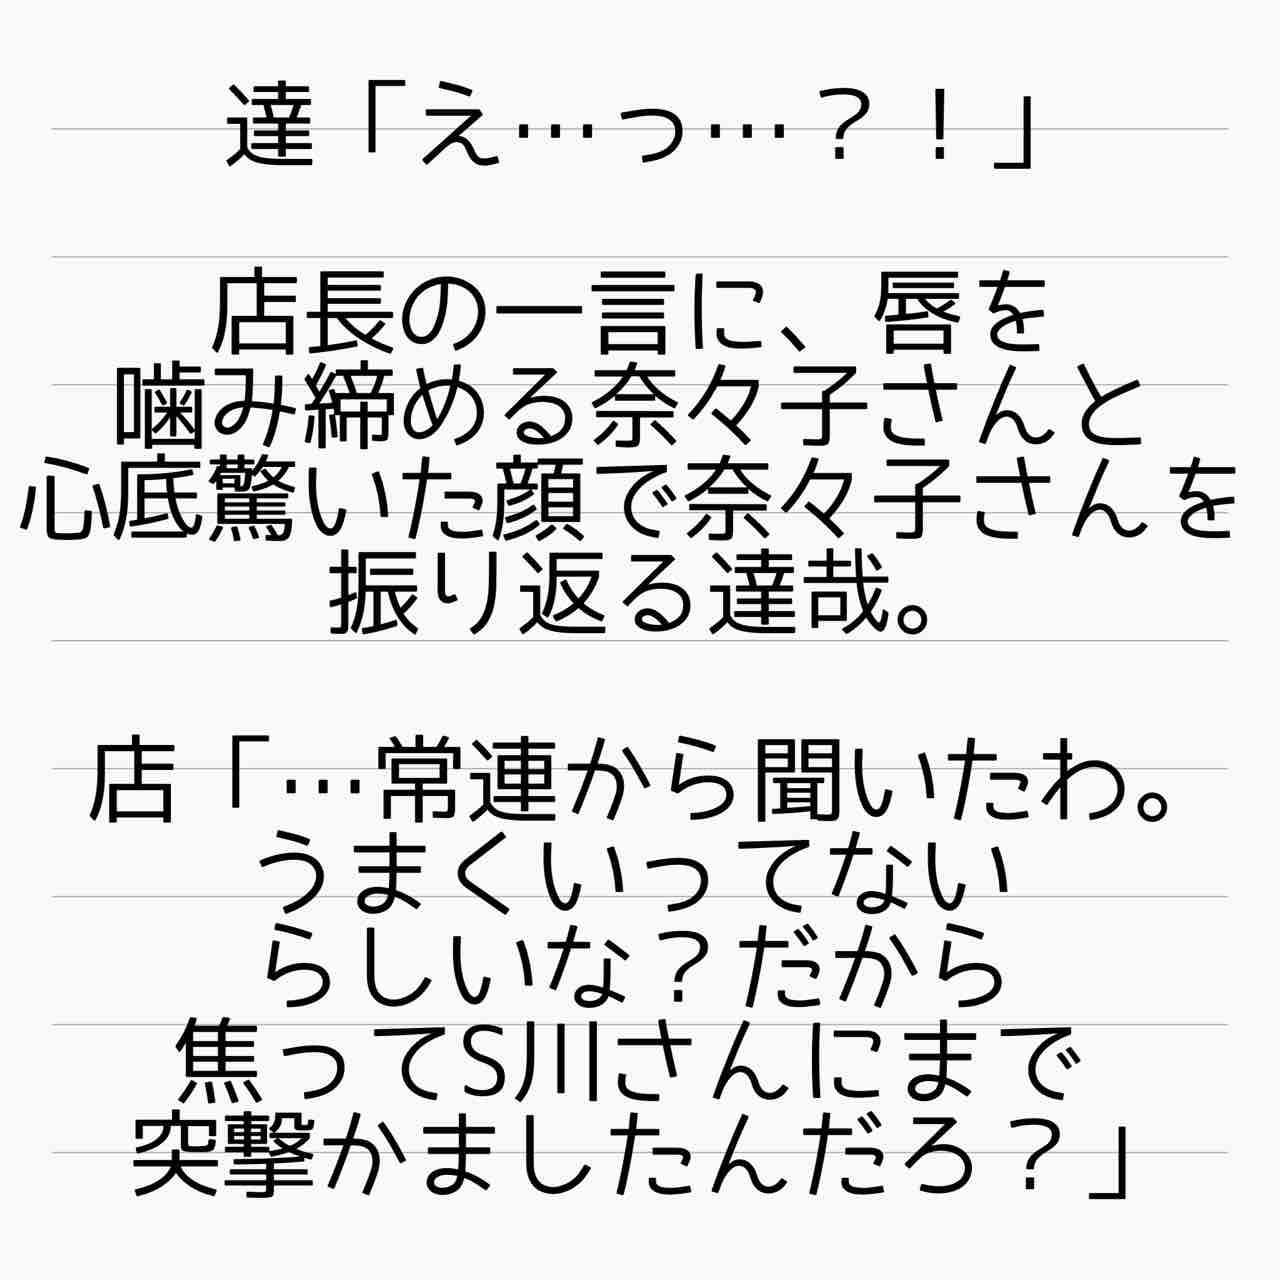 達「え…っ…？！」
店長の一言に、唇を
噛み締める奈々子さんと
心底驚いた顔で奈々子さんを
振り返る達哉。
店「…常連から聞いたわ。
うまくいってない
らしいな？だから
焦ってS川さんにまで
突撃かましたんだろ？」